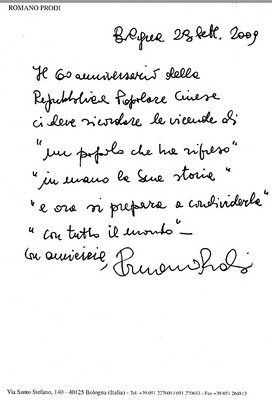 ROMANO PRODI
Bologna 23 Sett. 2009
Il 60 anniversario della
Repubblica Popolare Cinese
ci deve ricordare le vicende di
"un popolo che ha ripreso"
"in mano la sua storia"
"e ora si prepara a condividerla"
"con tutto il mondo"_
Con amicizia, Romano Prodi
Via Santo Stefano, 140 - 40125 Bologna (Italia) - Tel. +39 051 227600 / 051 270653 - Fax +39 051 264813